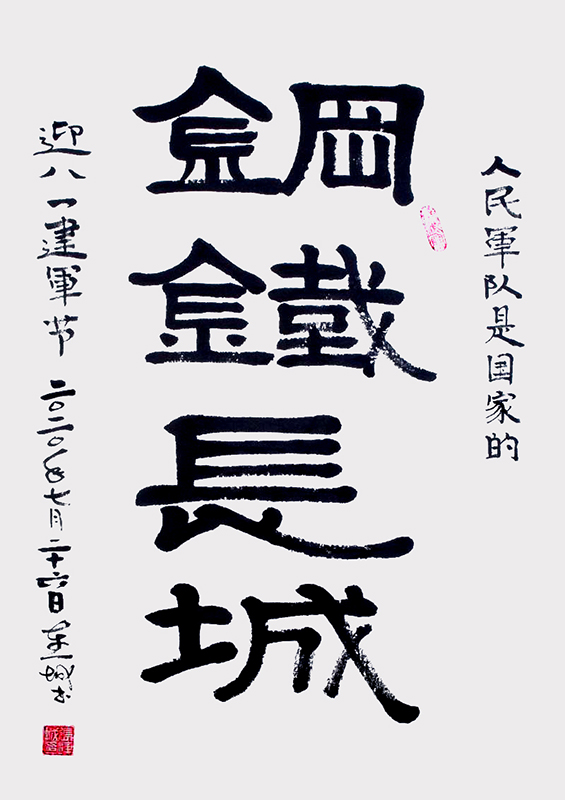 人民軍队是国家的
鋼鐵長城
迎八一建軍节 二〇二〇年七月二十六日 城书